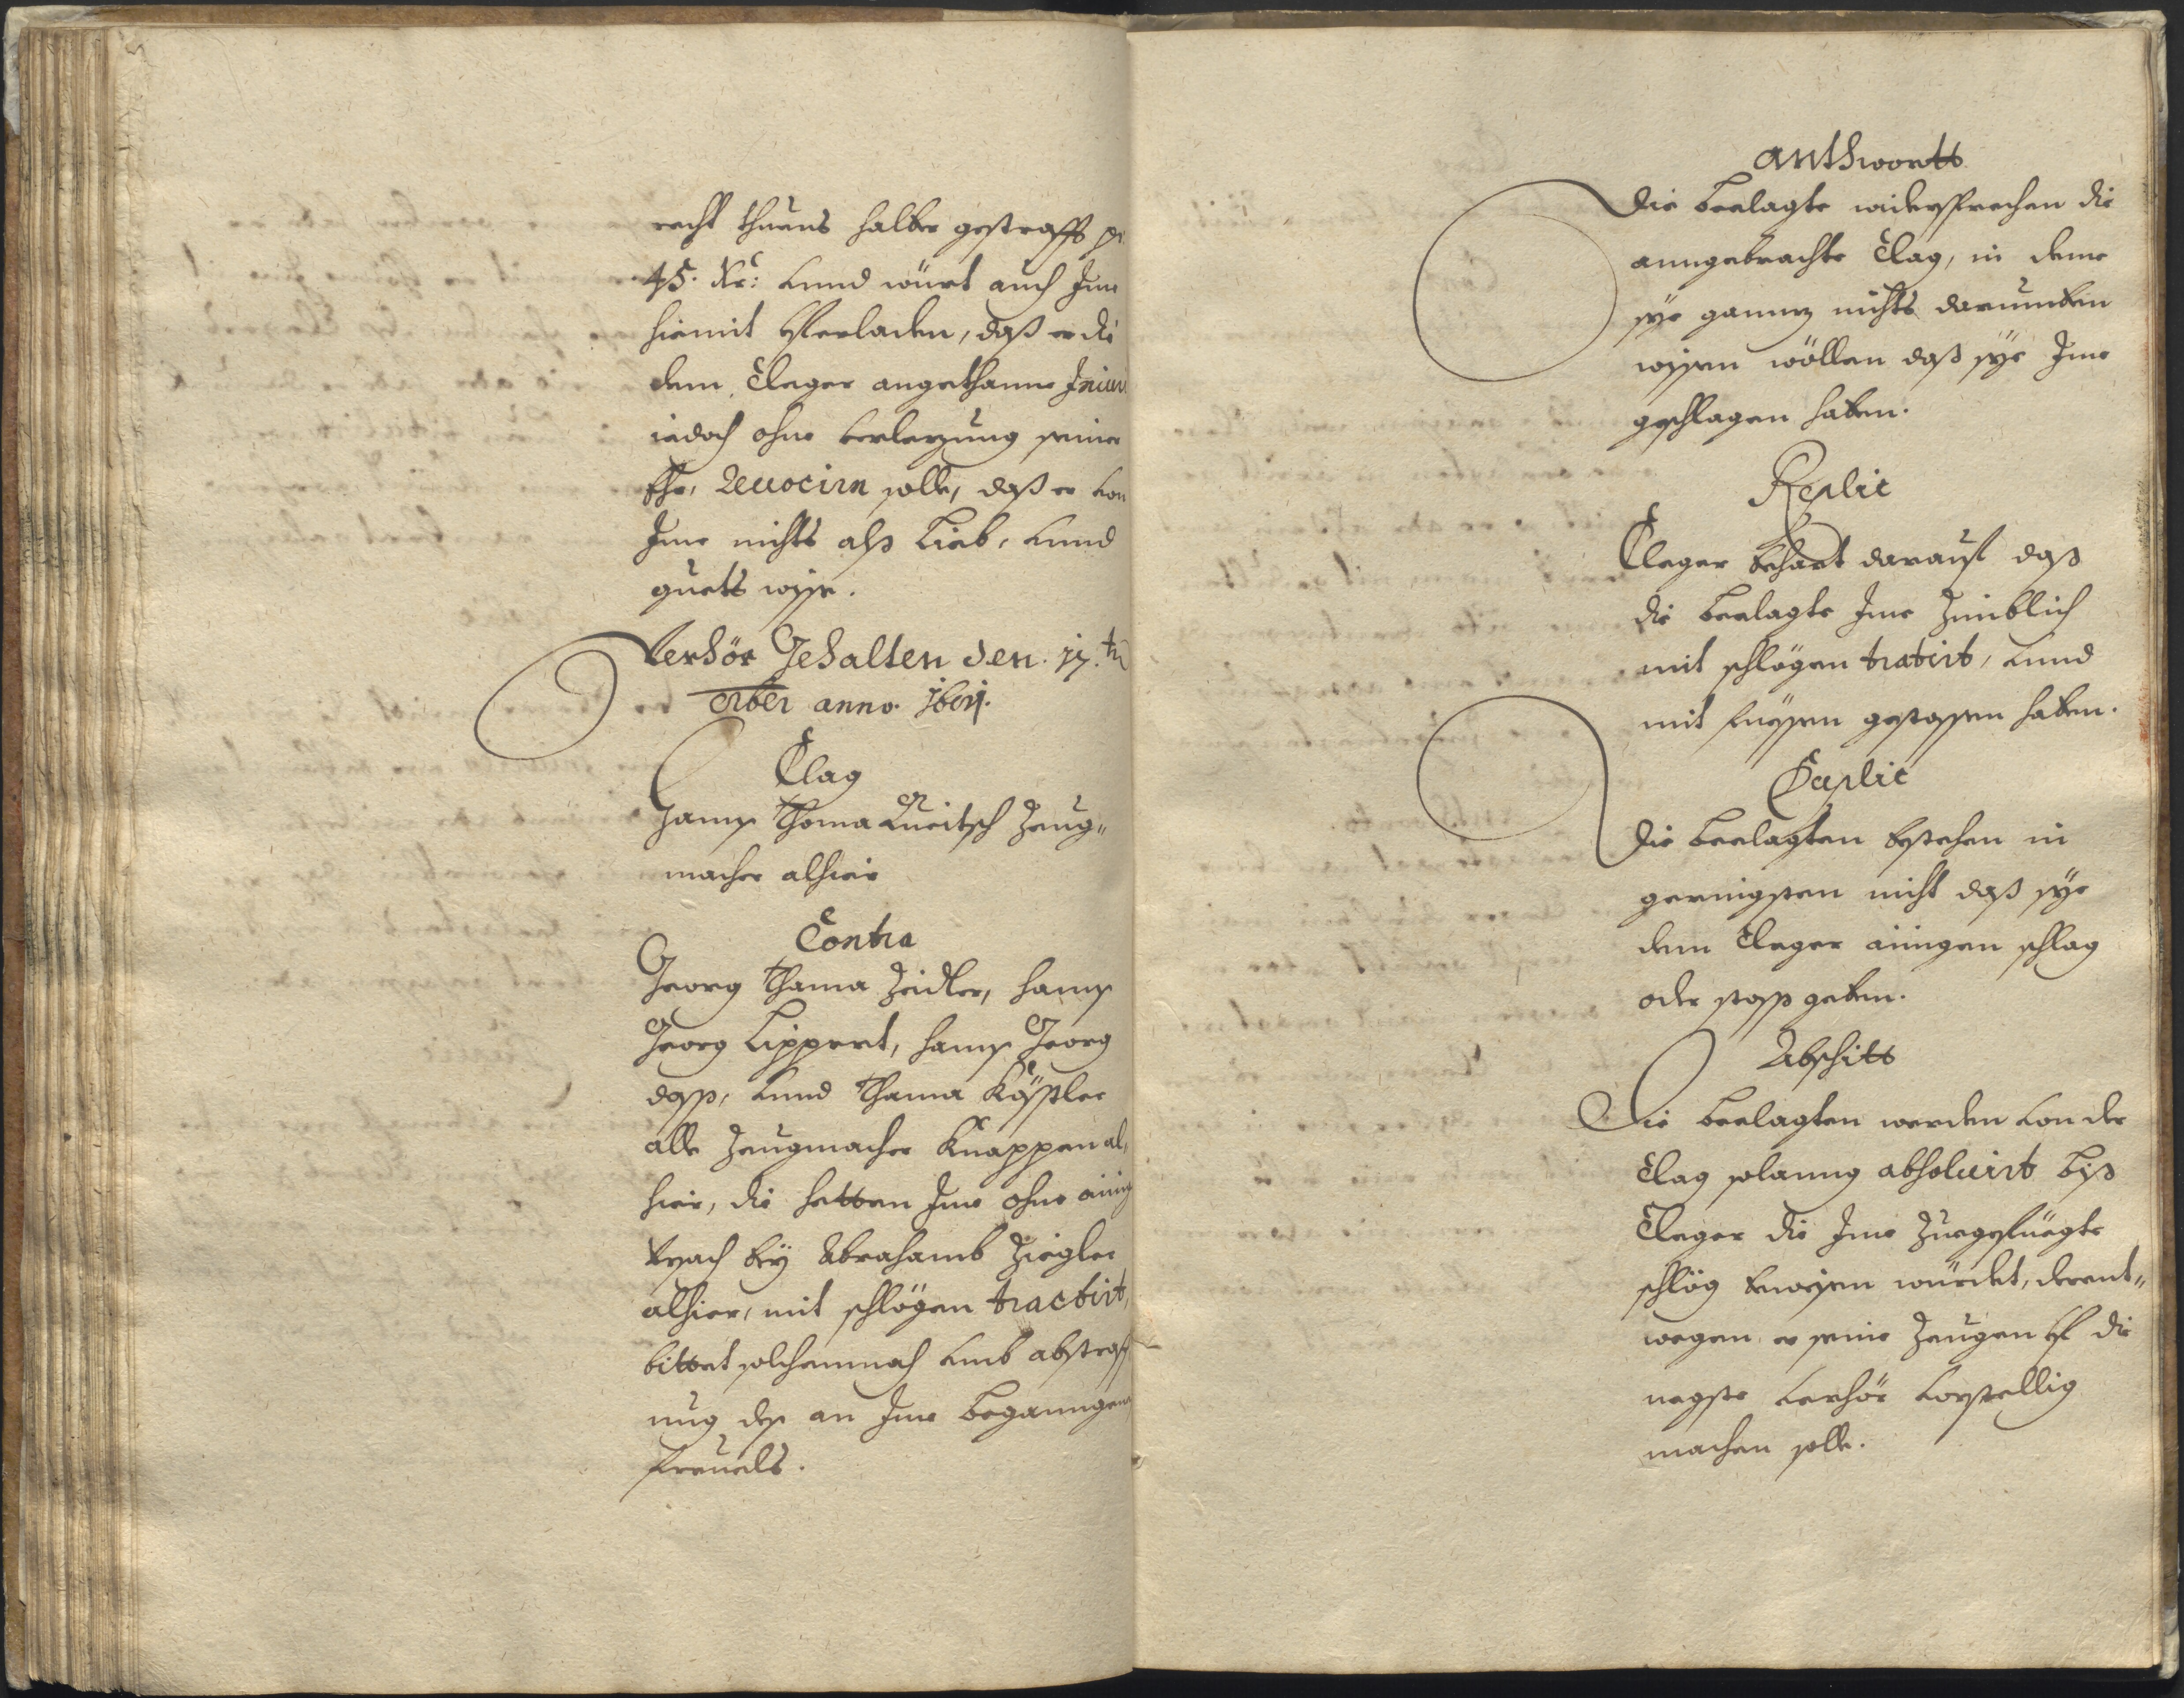 recht thuens halber gestrafft p
45. Kr: vnnd würt auch Jme
hiemit vferladen, daß er di
dem Cleger angethanne Iniuri
iedoch ohne verlezung seiner
Ehr, Reuocirn solle, daß er von
Jme nichts alß Lieb, vnnd
guets wisse.
Verhör Gehalten den. 17.tn
bris anno. 1661.
Clag
Hannß Thoma Zeug„
macher alhier
Contra
Georg Thama Zeidler, Hannß
Georg Lippert, Hannß Georg
doß, vnnd Thama Köstler
alle Zeugmacher Knappen al„
hier, die hetten Jme ohne ainig
Vrsach bey Abrahamb Ziegler
alhier, mit schlögen tractirt,
bittet solchemnach vmb abstraff
ung deß an Jme beganngenen
freuels.
Anthwortt
Die beclagte widersprechen die
anngebrachte Clag, in deme
sye gannz nichts darumben
wissen wöllen daß sye Jme
geschlagen haben.
Replic
Cleger behart darauf daß
die beclagte Jme zimblich
mit schlögen tratirt, vnnd
mit fuessen gestossen haben.
Duplic
Die beclagten bestehen in
geringsten nicht daß sye
dem Cleger ainigen schlag
oder stoss geben.
Abschitt
Die beclagten werden von der
Clag solanng absoluirt biß
Cleger die Jme zuegefüegte
schlög beweisen würdet, derent„
wegen er seine Zeugen vf die
negste verhör vorstellig
machen solle.